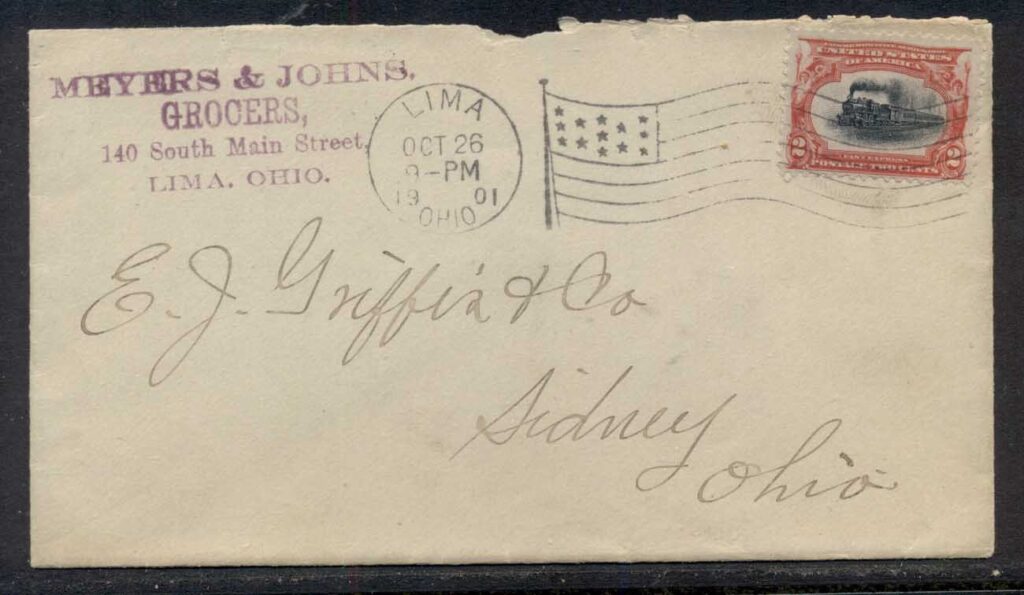 MEYERS & JOHNS.
GROCERS,
140 South Main Street,
LIMA, OHIO.
LIMA
OCT 26
9-PM
19 01
OHIO
UNITED STATES
OF AMERICA
2 2
POSTAGE TWO CENTS
E. J. Griffin & Co
Sidney
Ohio